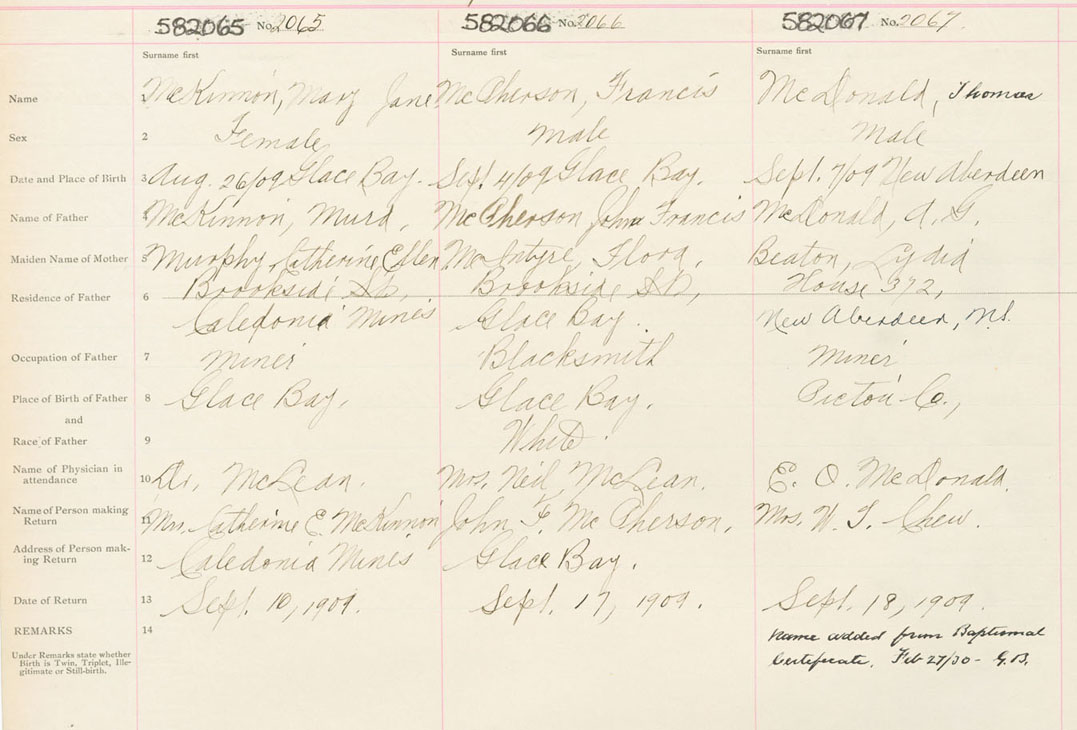 582065 No. 2065 582066 No. 2066 582067 No. 2067
Surname first Surname first Surname first
Name 1 McKinnon, Mary Jane McPherson, Francis McDonald, Thomas
Sex 2 Female Male Male
Date and Place of Birth 3 Aug. 26/09 Glace Bay. Sept. 4/09 Glace Bay. Sept. 7/09 New Aberdeen
Name of Father 4 McKinnon, Murd. McPherson John Francis McDonald, A. G.
Maiden Name of Mother 5 Murphy, Catherine Ellen McIntyre, Flora, Beaton, Lydia
Residence of Father 6 Brookside St., Brookside St., House 372,
Caledonia Mines Glace Bay. New Aberdeen, N.S.
Occupation of Father 7 Miner Blacksmith Miner
Place of Birth of Father 8 Glace Bay. Glace Bay. Pictou Co.,
and
Race of Father 9 White.
Name of Physician in
attendance 10 Dr. McLean. Mrs. Neil McLean. E. O. McDonald.
Name of Person making
Return 11 Mrs. Catherine E. McKinnon John F. McPherson. Mrs. W. T. Chew.
Address of Person mak-
ing Return 12 Caledonia Mines Glace Bay.
Date of Return 13 Sept. 10, 1909. Sept. 17, 1909. Sept. 18, 1909.
REMARKS 14 Name added from Baptismal
Under Remarks state whether
Birth is Twin, Triplet, Ille-
gitimate or Still-birth.
Certificate. Feb 27/30 - G.B.